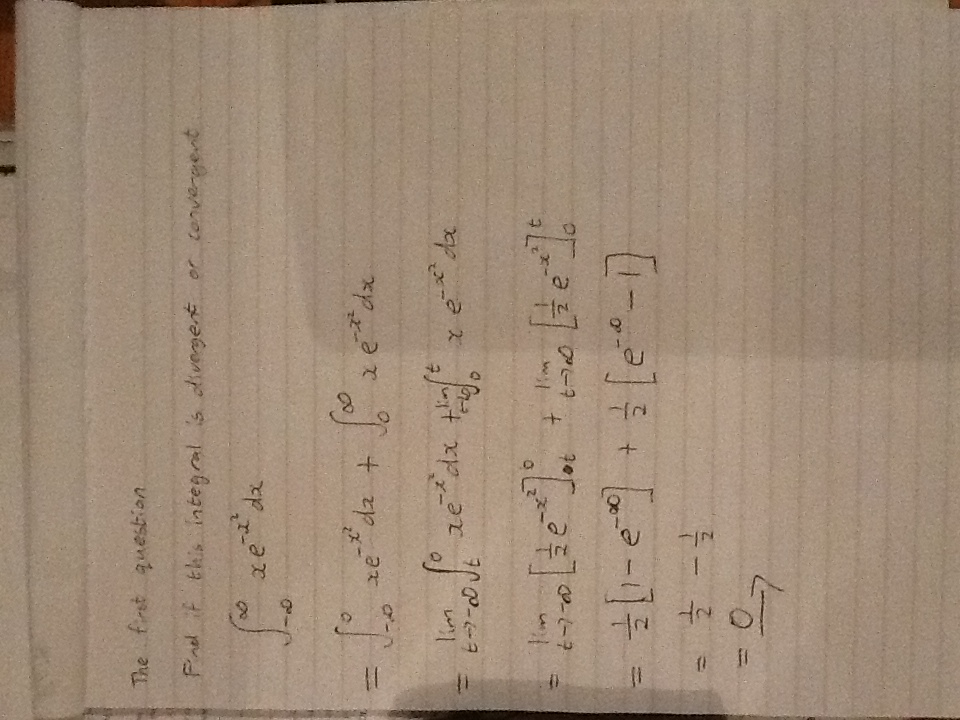 The first question
Find if this integral is divergent or convergent
∫_{-∞}^{∞} xe^{-x²} dx
= ∫_{-∞}^{0} xe^{-x²} dx + ∫_{0}^{∞} xe^{-x²} dx
= lim_{t→-∞} ∫_{t}^{0} xe^{-x²} dx + lim_{t→∞} ∫_{0}^{t} xe^{-x²} dx
= lim_{t→-∞} [½ e^{-x²}]_{t}^{0} + lim_{t→∞} [½ e^{-x²}]_{0}^{t}
= ½ [1 - e^{-∞}] + ½ [e^{-∞} - 1]
= ½ - ½
= 0